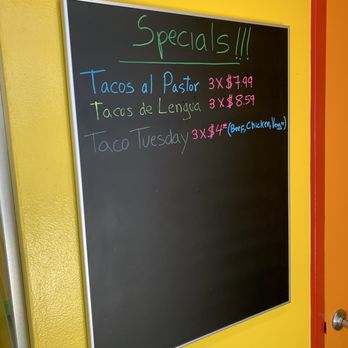 Specials!!!
Tacos al Pastor 3 X $7.99
Tacos de Lengua 3 X $8.59
Taco Tuesday 3 X $4 (Beef, Chicken,